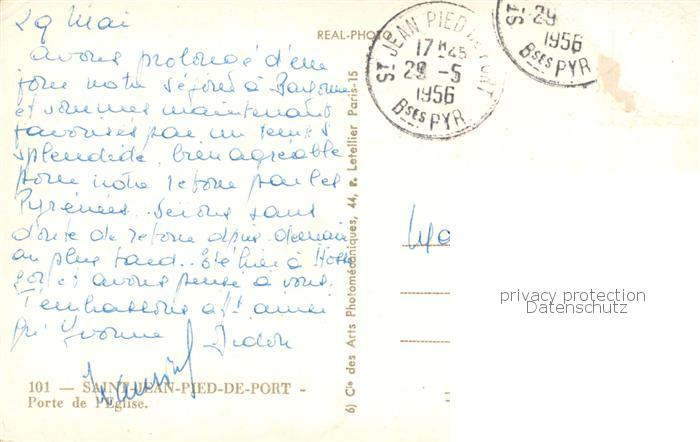 29 Mai
avons prolongé d'une
jour notre séjour à Bayonne
et sommes maintenant
favorisés par un temps
splendide, bien agréable
pour notre retour par les
Pyrénées. Serons sans
doute de retour après demain
au plus tard.. Été hier à Hosse
gor et avons pensé à vous.
T'embrassons aff. ainsi
Yvonne
101 — SAINT-JEAN-PIED-DE-PORT -
Porte de l'Eglise.
REAL-PHOTO
6) Cie des Arts Photomécaniques, 44, r. Letellier Paris-15
ST JEAN PIED DE PORT
17 H45
29 -5
1956
Bses PYR
ST
29
1956
Bses PYR
privacy protection
Datenschutz